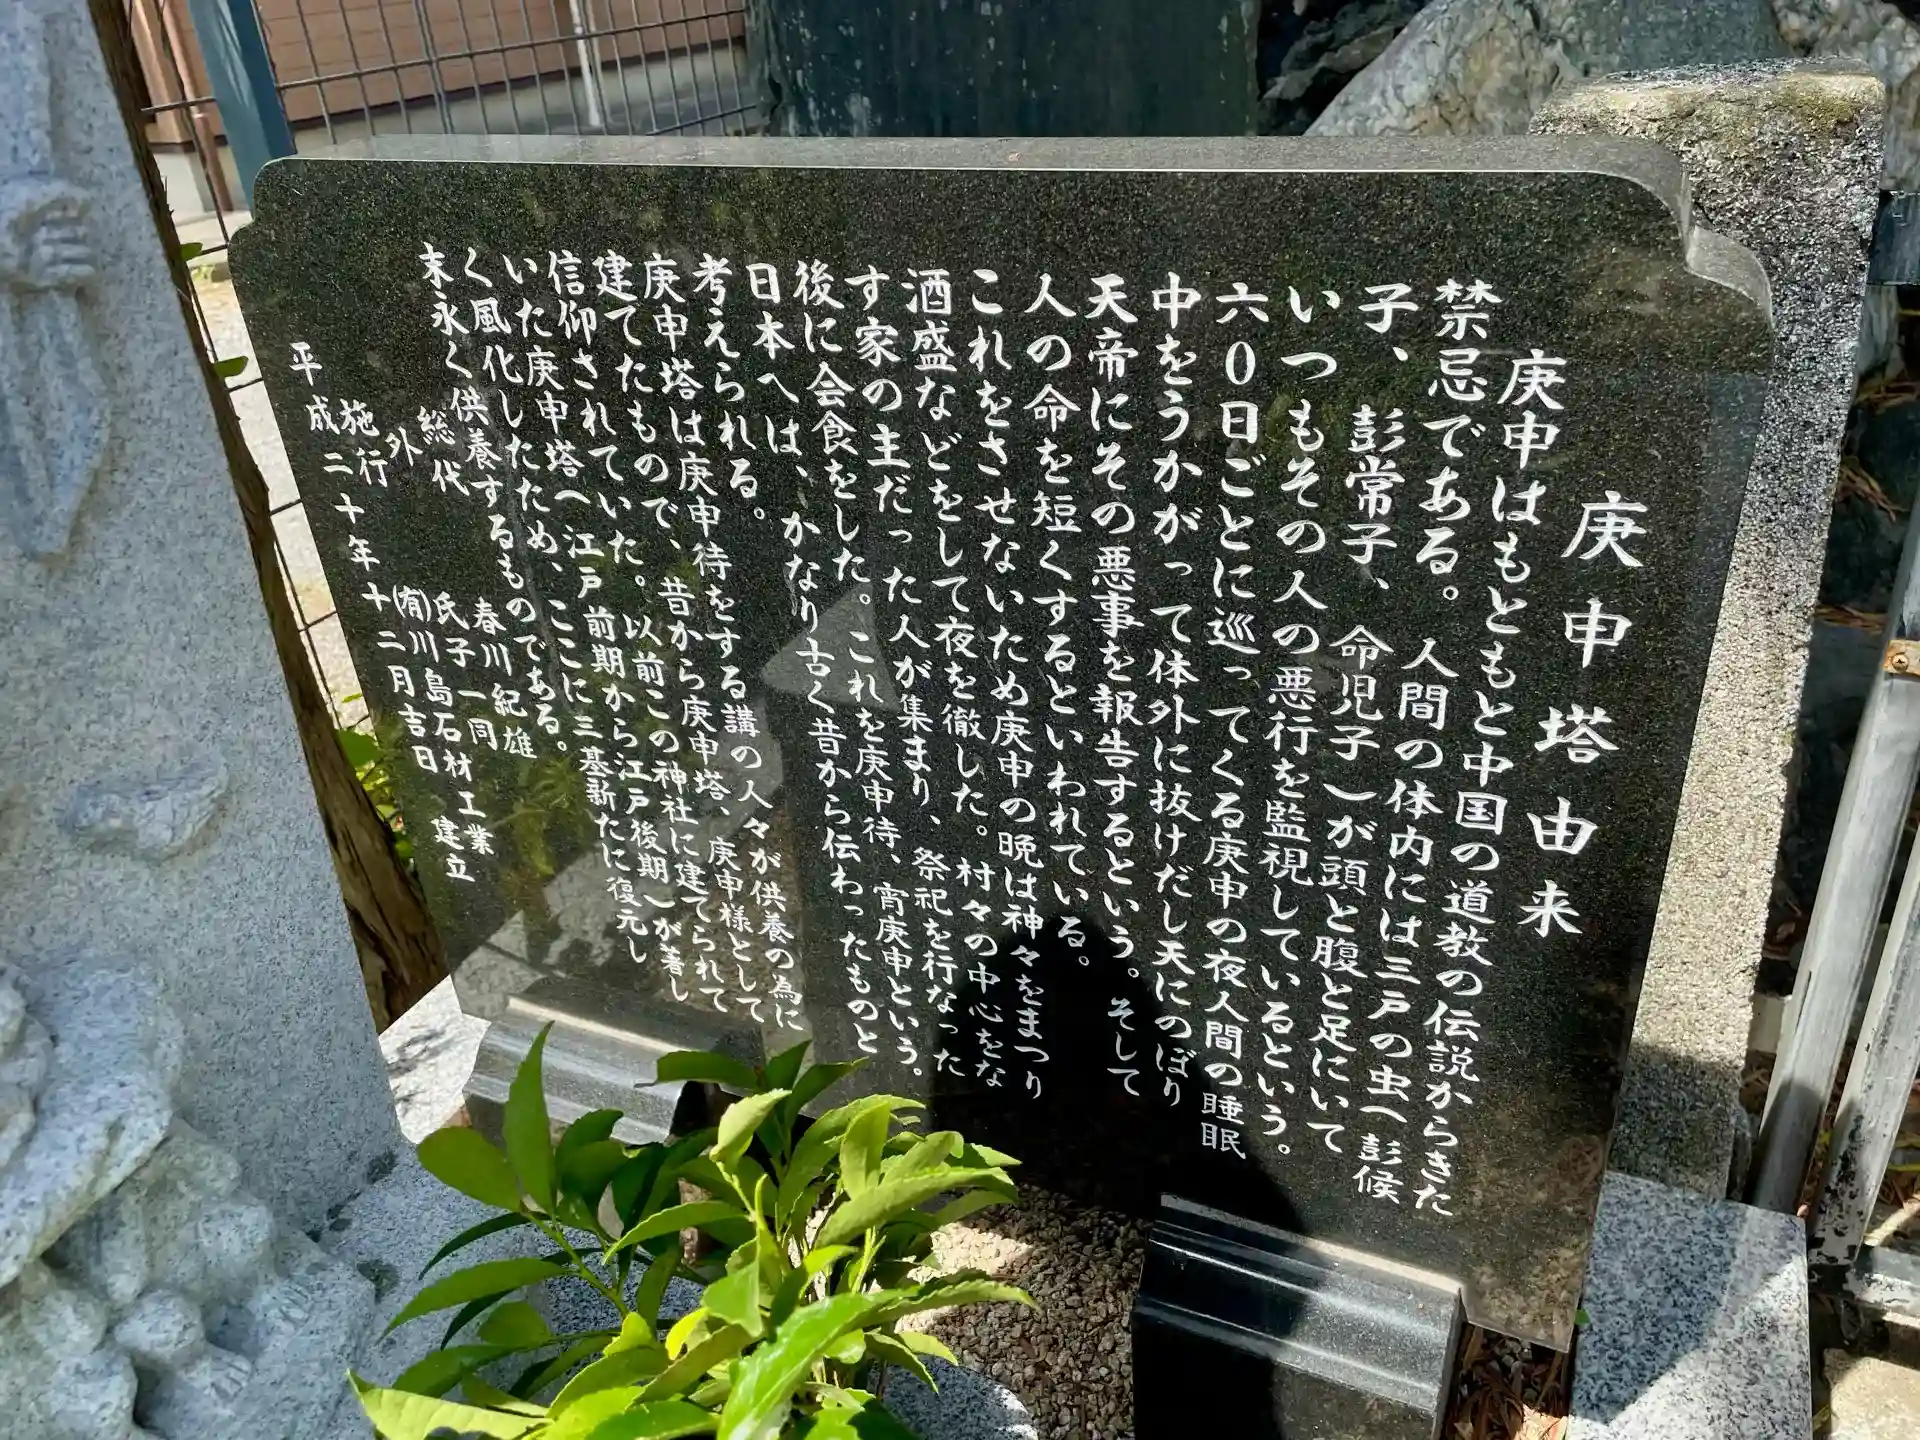 庚申塔由来
庚申はもともと中国の道教の伝説からきた
禁忌である。人間の体内には三戸の虫(彭候
子、彭常子、命児子)が頭と腹と足にいて
いつもその人の悪行を監視しているという。
六0日ごとに巡ってくる庚申の夜人間の睡眠
中をうかがって体外に抜けだし天にのぼり
天帝にその悪事を報告するという。そして
人の命を短くするといわれている。
これをさせないため庚申の晩は神々をまつり
酒盛などをして夜を徹した。村々の中心をな
す家の主だった人が集まり、祭祀を行なった
後に会食をした。これを庚申待、宵庚申という。
日本へは、かなり古く昔から伝わったものと
考えられる。
庚申塔は庚申待をする講の人々が供養の為に
建てたもので、昔から庚申塔、庚申様として
信仰されていた。以前この神社に建てられて
いた庚申塔(江戸前期から江戸後期)が著し
く風化したため、ここに三基新たに復元し
末永く供養するものである。
総代 春川紀雄
外 氏子一同
施行 (有)川島石材工業
平成二十年十二月吉日 建立